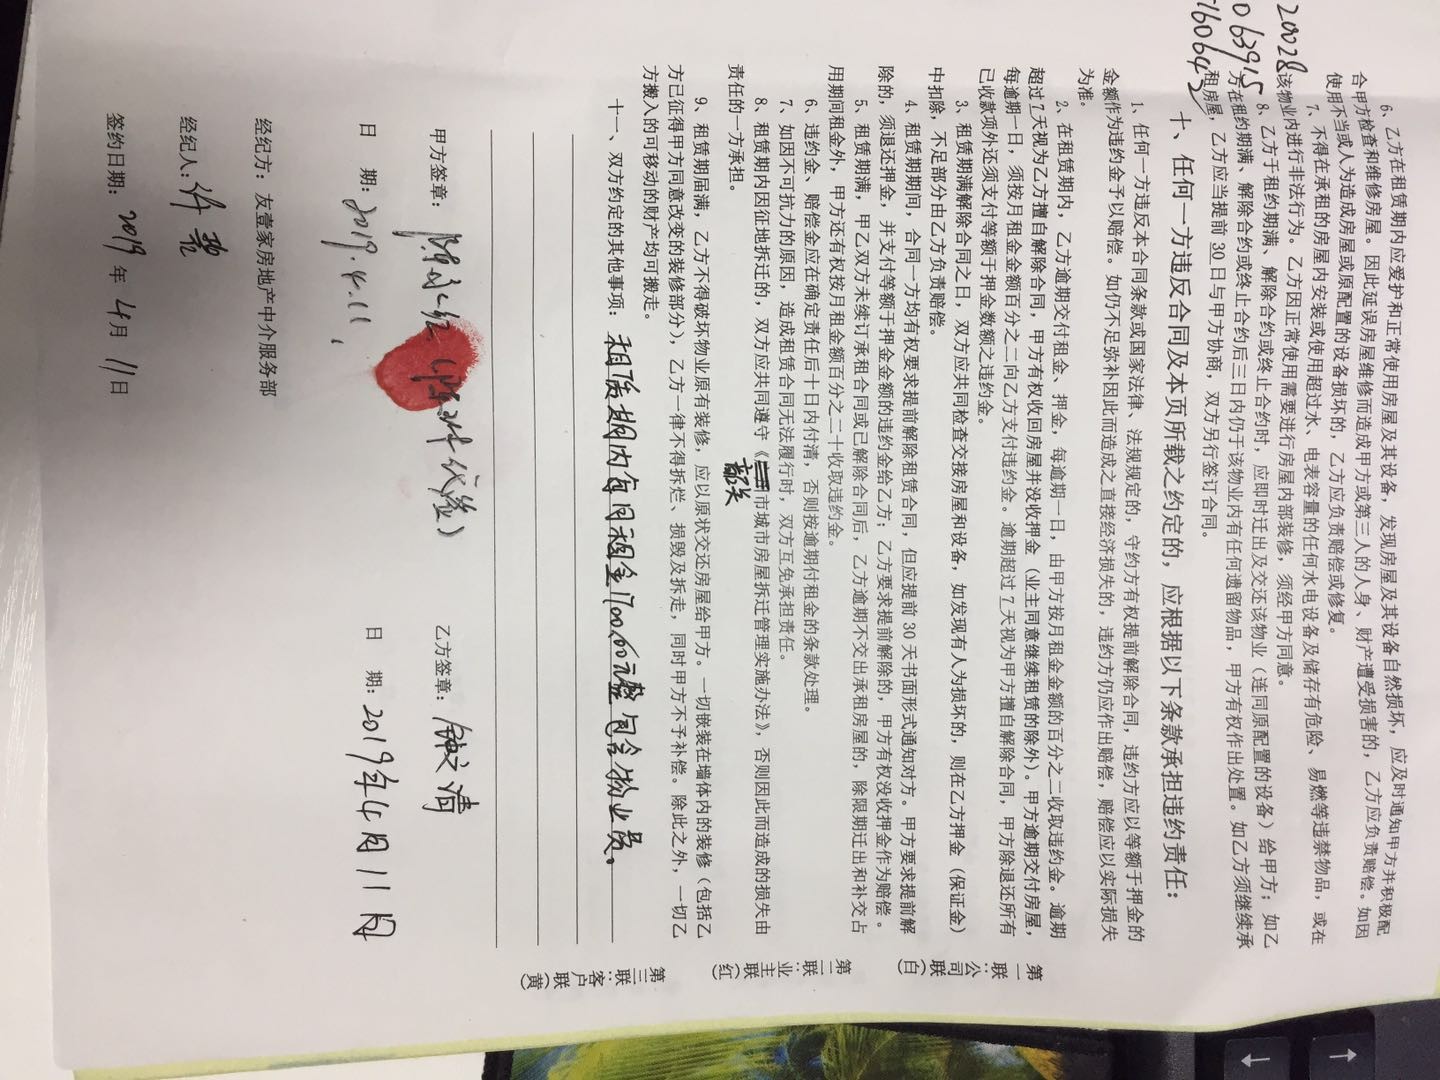 20028
063915
160643
6、乙方在租赁期内应爱护和正常使用房屋及其设备，发现房屋及其设备自然损坏，应及时通知甲方并积极配
合甲方检查和维修房屋。因此延误房屋维修而造成甲方或第三人的人身、财产遭受损害的，乙方应负责赔偿。如因
使用不当或人为造成房屋或原配置的设备损坏的，乙方应负责赔偿或修复。
7、不得在承租的房屋内安装或使用超过水、电表容量的任何水电设备及储存有危险、易燃等违禁物品，或在
该物业内进行非法行为。乙方因正常使用需要进行房屋内部装修，须经甲方同意。
8、乙方于租约期满、解除合约或终止合约时，应即时迁出及交还该物业（连同原配置的设备）给甲方；如乙
方在租约期满、解除合约或终止合约后三日内仍于该物业内有任何遗留物品，甲方有权作出处置。如乙方须继续承
租房屋，乙方应当提前 30 日与甲方协商，双方另行签订合同。
十、任何一方违反合同及本页所载之约定的，应根据以下条款承担违约责任：
1、任何一方违反本合同条款或国家法律、法规规定的，守约方有权提前解除合同，违约方应以等额于押金的
金额作为违约金予以赔偿。如仍不足弥补因此而造成之直接经济损失的，违约方仍应作出赔偿，赔偿应以实际损失
为准。
2、在租赁期内，乙方逾期交付租金、押金，每逾期一日，由甲方按月租金金额的百分之二收取违约金。逾期
超过 7 天视为乙方擅自解除合同，甲方有权收回房屋并没收押金（业主同意继续租赁的除外）。甲方逾期交付房屋，
每逾期一日，须按月租金金额百分之二向乙方支付违约金。逾期超过 7 天视为甲方擅自解除合同，甲方除退还所有
已收款项外还须支付等额于押金数额之违约金。
3、租赁期满解除合同之日，双方应共同检查交接房屋和设备，如发现有人为损坏的，则在乙方押金（保证金）
中扣除，不足部分由乙方负责赔偿。
4、租赁期期间，合同一方均有权要求提前解除租赁合同，但应提前 30 天书面形式通知对方。甲方要求提前解
除的，须退还押金，并支付等额于押金金额的违约金给乙方；乙方要求提前解除的，甲方有权没收押金作为赔偿。
5、租赁期满，甲乙双方未续订承租合同或已解除合同后，乙方逾期不交出承租房屋的，除限期迁出和补交占
用期间租金外，甲方还有权按月租金额百分之二十收取违约金。
6、违约金、赔偿金应在确定责任后十日内付清，否则按逾期付租金的条款处理。
7、如因不可抗力的原因，造成租赁合同无法履行时，双方互免承担责任。
8、租赁期内因征地拆迁的，双方应共同遵守《韶关市城市房屋拆迁管理实施办法》，否则因此而造成的损失由
责任的一方承担。
9、租赁期届满，乙方不得破坏物业原有装修，应以原状交还房屋给甲方。一切嵌装在墙体内的装修（包括乙
方已征得甲方同意改变的装修部分），乙方一律不得拆烂、损毁及拆走，同时甲方不予补偿。除此之外，一切乙
方搬入的可移动的财产均可搬走。
十一、双方约定的其他事项：租赁期内每月租金1700.00元整包含物业费。
甲方签章：代签）
乙方签章：
日 期：2019.4.11
日 期：2019年4月11日
经纪方：友壹家房地产中介服务部
经纪人：
签约日期：2019年4月11日
第一联：公司联（白）
第二联：业主联（红）
第三联：客户联（黄）